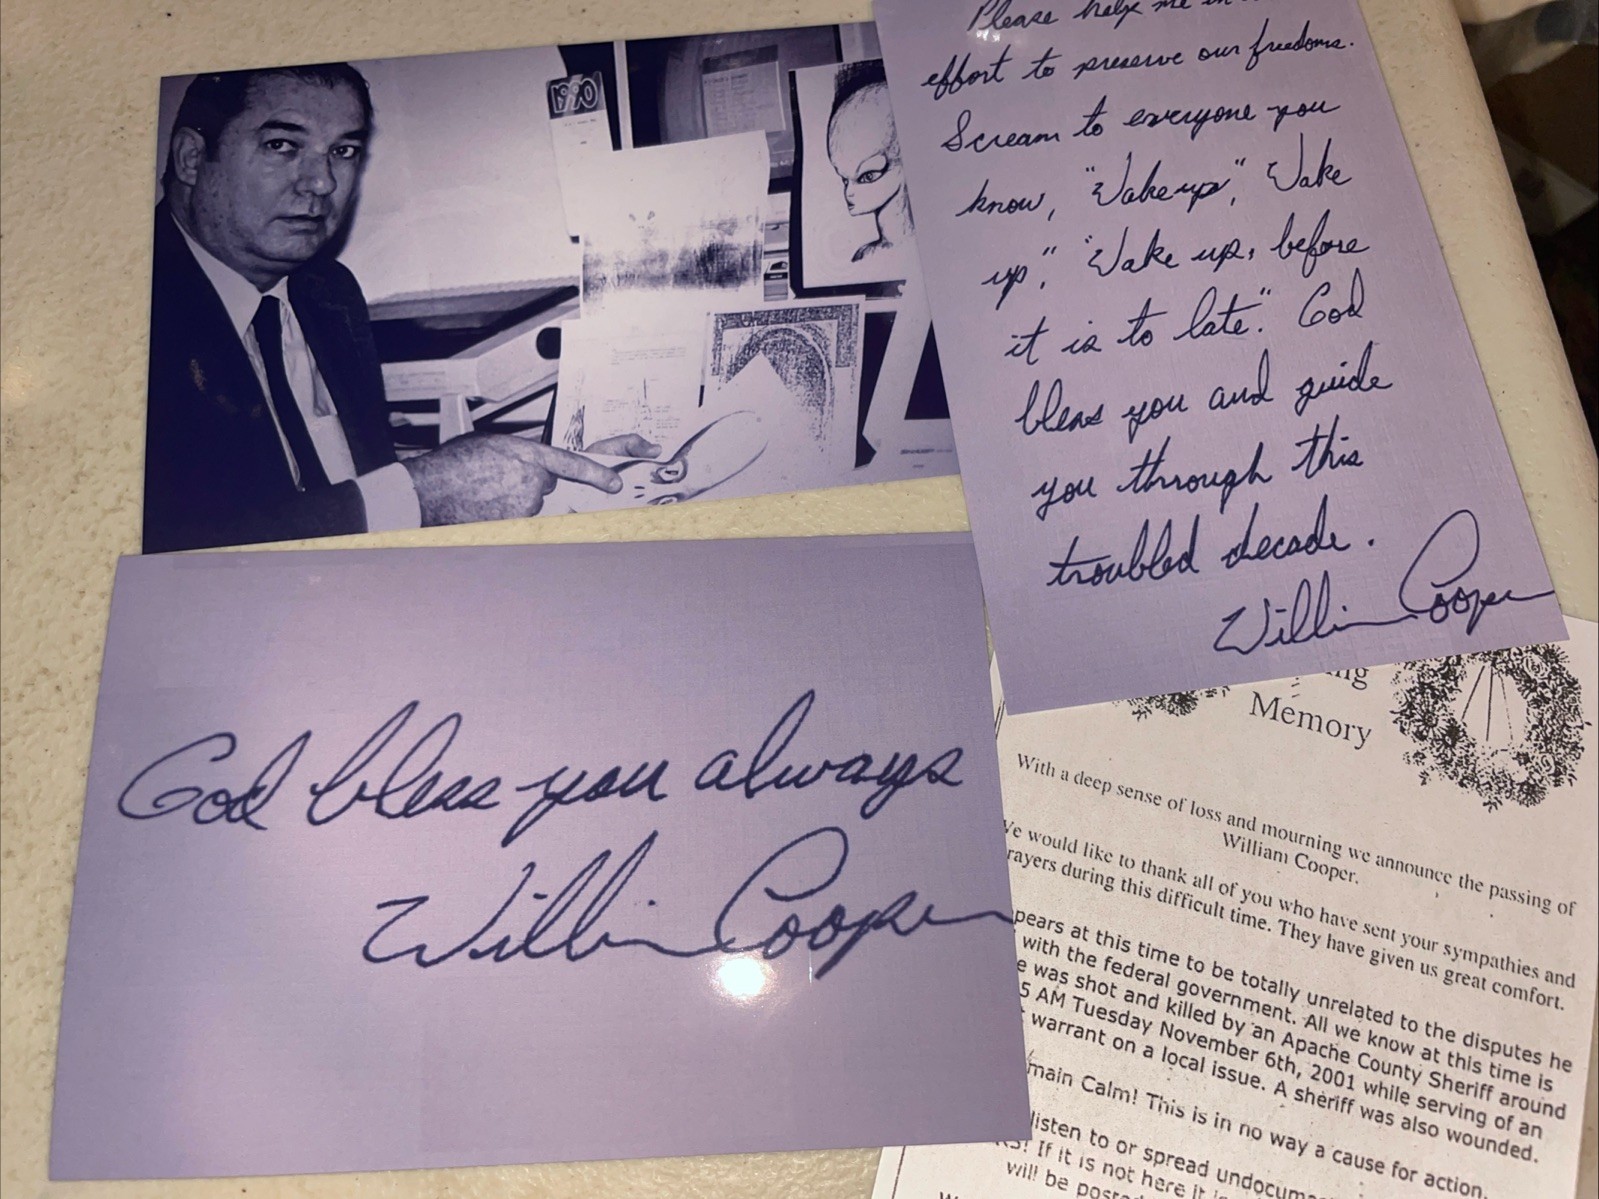 1990
Please help me in
effort to preserve our freedoms.
Scream to everyone you
know, "Wake up", Wake
up," "Wake up, before
it is to late." God
bless you and guide
you through this
troubled decade.
William Cooper
God bless you always
William Cooper
Memory
With a deep sense of loss and mourning we announce the passing of
William Cooper.
We would like to thank all of you who have sent your sympathies and
rayers during this difficult time. They have given us great comfort.
pears at this time to be totally unrelated to the disputes he
with the federal government. All we know at this time is
e was shot and killed by an Apache County Sheriff around
5 AM Tuesday November 6th, 2001 while serving of an
warrant on a local issue. A sheriff was also wounded.
main Calm! This is in no way a cause for action.
listen to or spread undocum
If it is not here it
will be posted